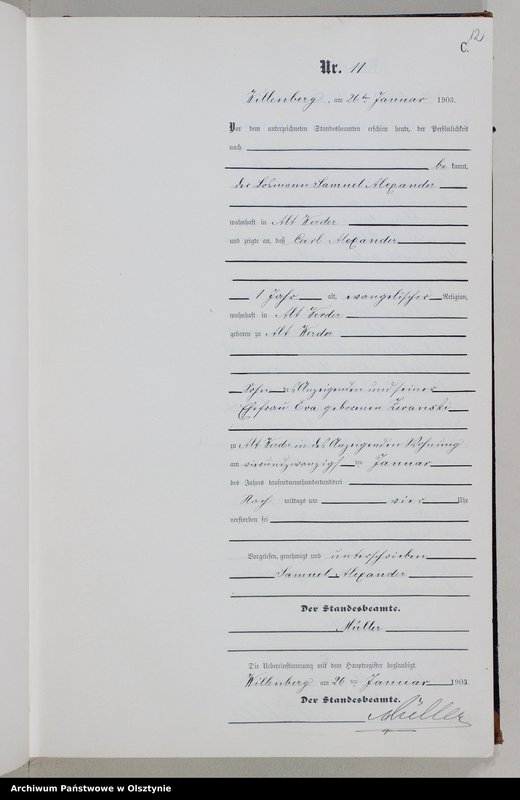 12
C.
Nr. 11
Willenberg, am 26ten Januar 1903.
Vor dem unterzeichneten Standesbeamten erschien heute, der Persönlichkeit
nach
be kannt,
der Losmann Samuel Alexander
wohnhaft in Alt Werder
und zeigte an, daß Carl Alexander
1 Jahr alt, evangelischer Religion,
wohnhaft in Alt Werder
geboren zu Alt Werder
Sohn des Anzeigenden und seiner
Ehefrau Eva geborenen Zeranski
zu Alt Werder in des Anzeigenden Wohnung
am vierundzwanzigsten Januar
des Jahres tausendneunhundertunddrei
Nach mittags um vier Uhr
verstorben sei
Vorgelesen, genehmigt und unterschrieben
Samuel Alexander
Der Standesbeamte.
Müller
Die Uebereinstimmung mit dem Hauptregister beglaubigt.
Willenberg am 26ten Januar 1903
Der Standesbeamte.
Müller
Archiwum Państwowe w Olsztynie